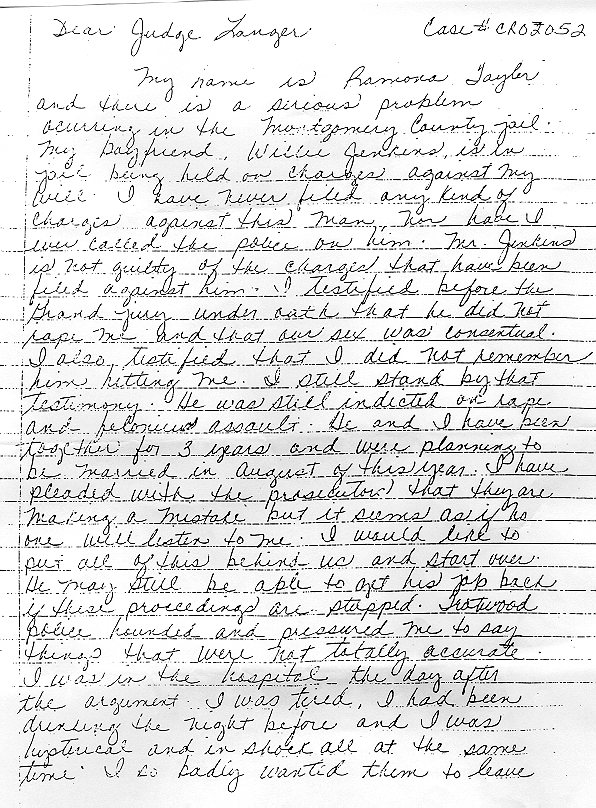 Dear Judge Langer. Case # CR02052
My name is Ramona Tayler
and there is a serious problem
ocurring in the Montgomery County jail.
My boyfriend, Willie Jenkins, is in
jail being held on charges against my
will. I have never filed any kind of
charges against this man, nor have I
ever called the police on him. Mr. Jenkins
is not guilty of the charges that have been
filed against him. I testified before the
Grand jury under oath that he did not
rape me and that our sex was consentual.
I also testified that I did not remember
him hitting me. I still stand by that
testimony. He was still indicted on rape
and felonious assault. He and I have been
together for 3 years and were planning to
be married in August of this year. I have
pleaded with the prosecutor that they are
making a mistake but it seems as if no
one will listen to me. I would like to
put all of this behind us and start over.
He may still be able to get his job back
if these proceedings are stopped. Trotwood
police hounded and pressured me to say
things that were not totally accurate.
I was in the hospital the day after
the argument. I was tired, I had been
drinking the night before and I was
hysterical and in shock all at the same
time. I so badly wanted them to leave